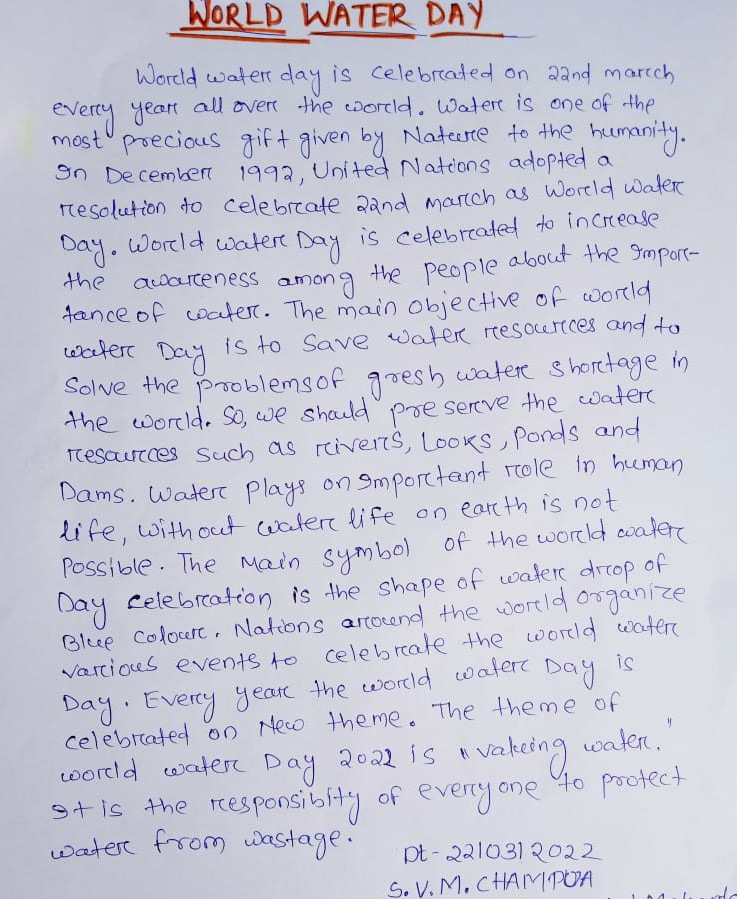 WORLD WATER DAY
World water day is celebrated on 22nd march
every year all over the world. Water is one of the
most precious gift given by Nature to the humanity.
In December 1992, United Nations adopted a
resolution to celebrate 22nd march as World Water
Day. World water Day is celebrated to increase
the awareness among the people about the Impor-
tance of water. The main objective of world
water Day is to save water resources and to
Solve the problems of gresh water shortage in
the world. So, we should preserve the water
resources such as rivers, Looks, Ponds and
Dams. Water plays on Important role in human
life, without water life on earth is not
Possible. The Main symbol of the world water
Day celebration is the shape of water drop of
Blue colour. Nations around the world organize
various events to celebrate the world water
Day. Every year the world water Day is
celebrated on New theme. The theme of
world water Day 2022 is "valueing water."
It is the responsiblty of every one to protect
water from wastage.
Dt-22/03/2022
S.V.M. CHAMPUA